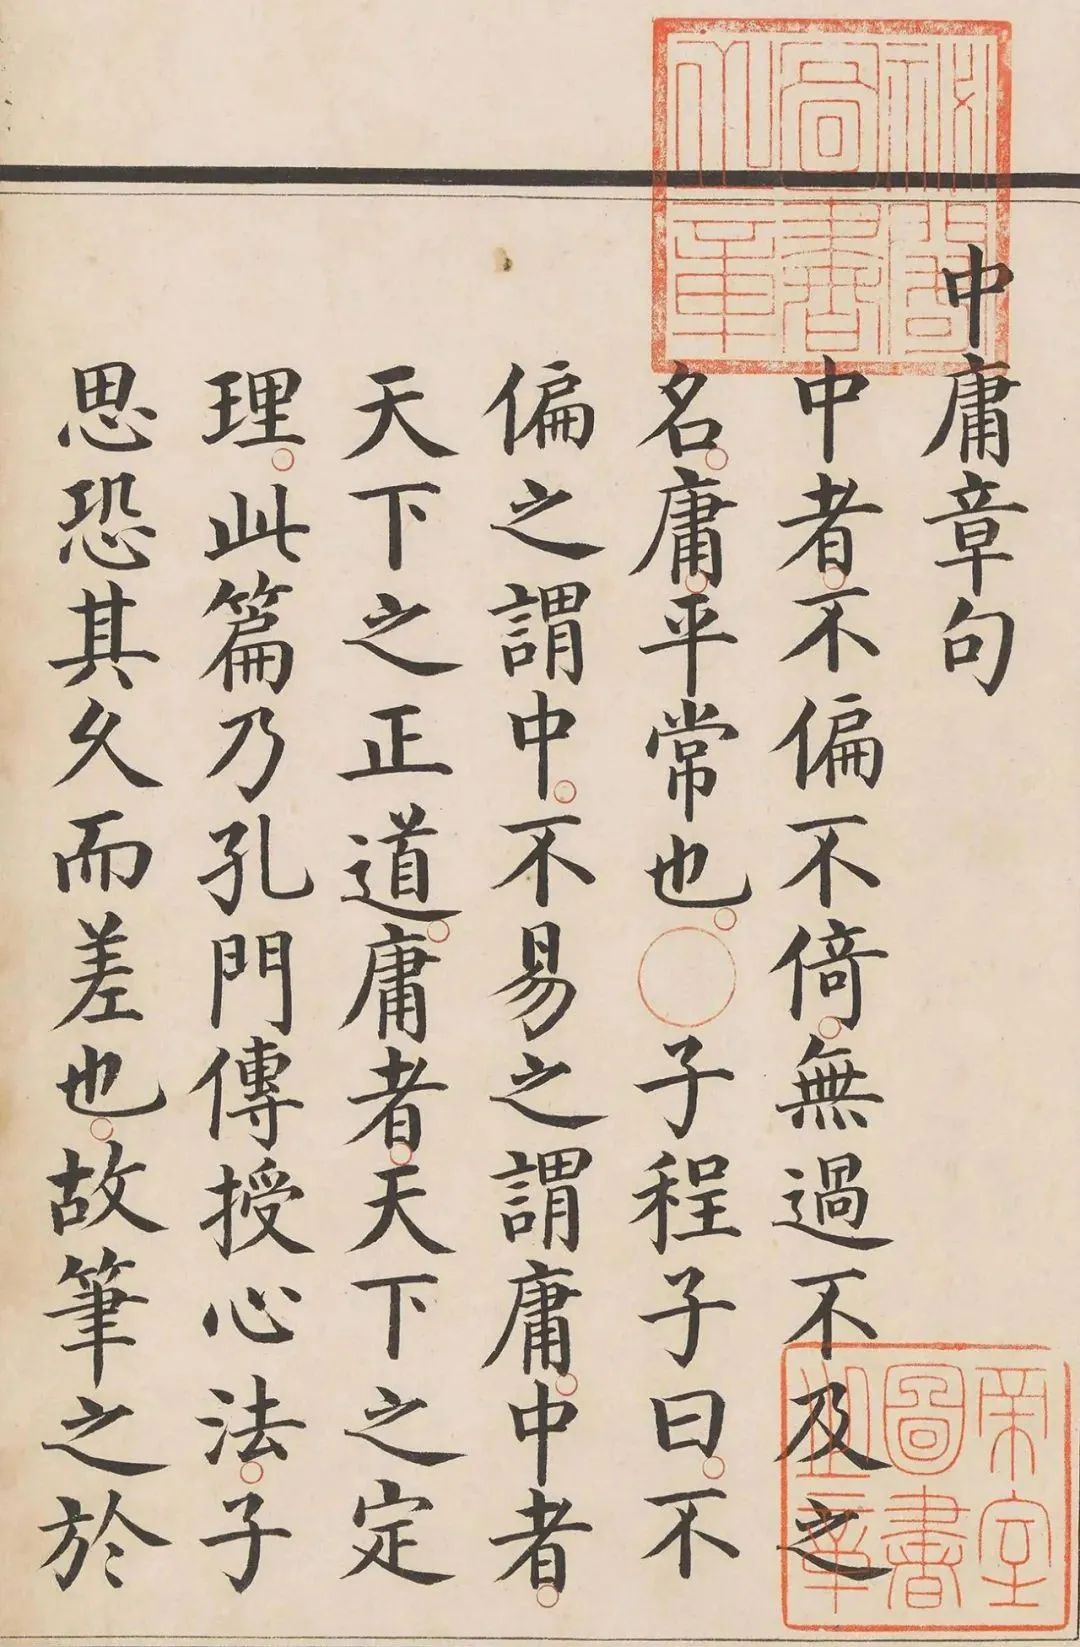 中庸章句
中者不偏不倚無過不及之
名庸平常也○子程子曰不
偏之謂中不易之謂庸中者
天下之正道庸者天下之定
理此篇乃孔門傳授心法子
思恐其久而差也故筆之於
秘閣圖書之章
帝室圖書之章